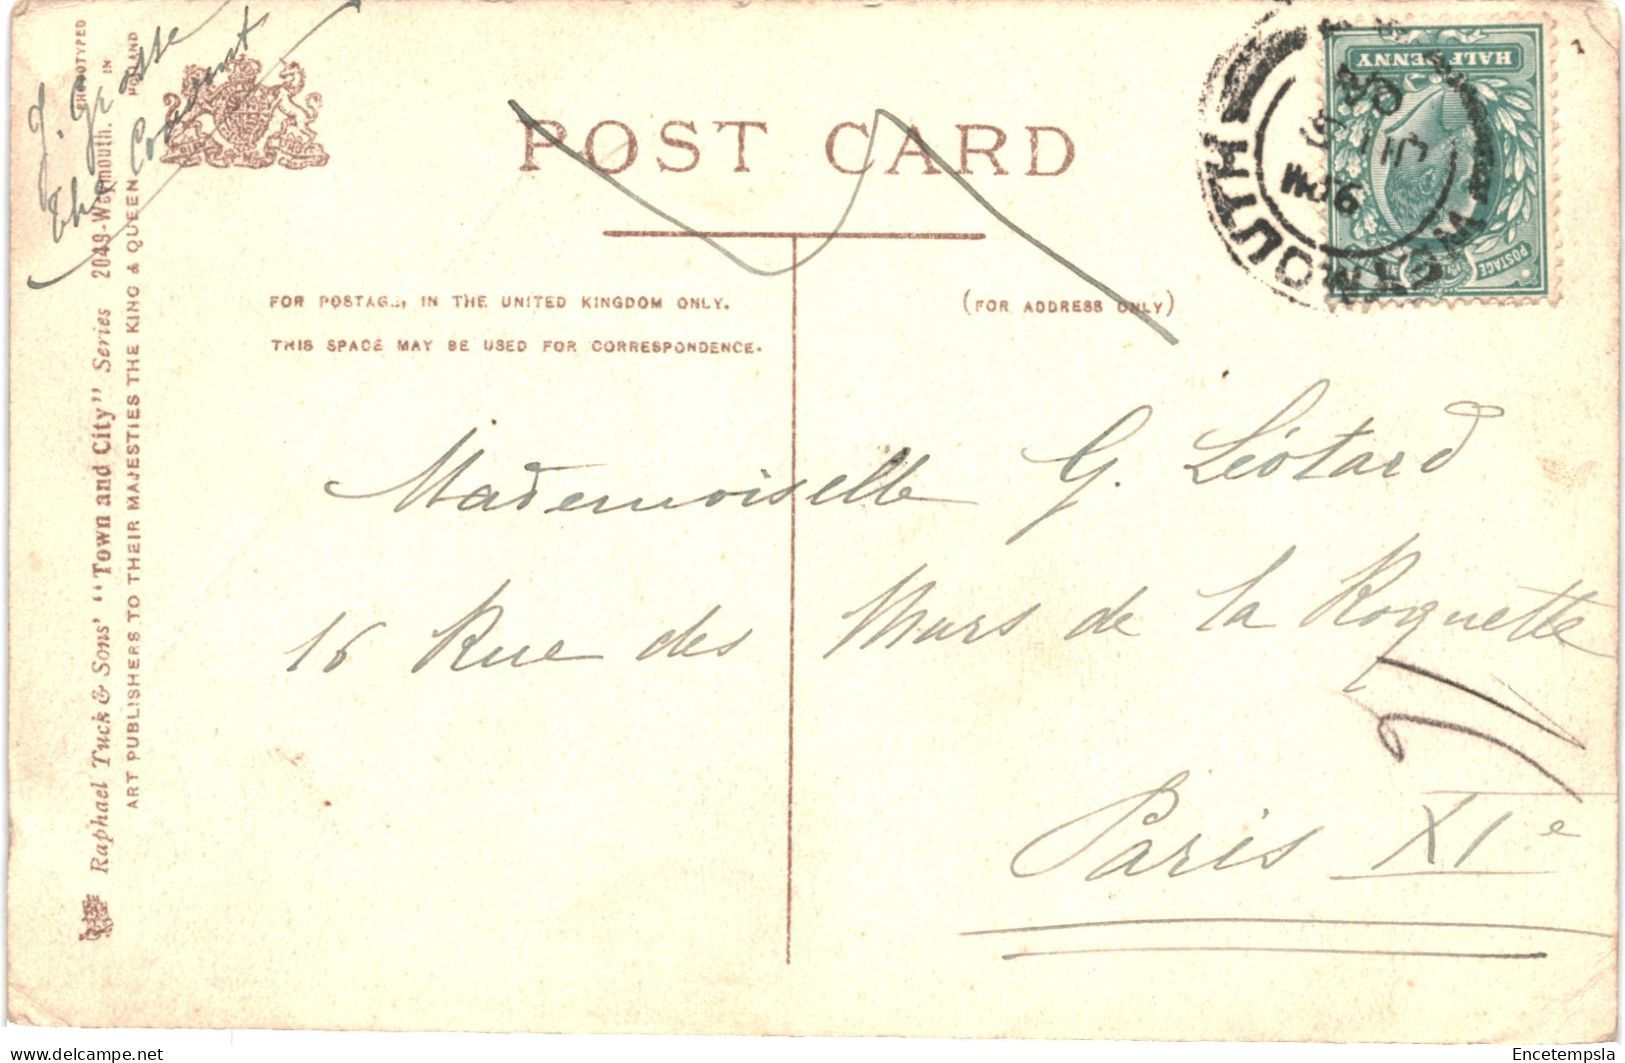 POST CARD
FOR POSTAGE, IN THE UNITED KINGDOM ONLY.
THIS SPACE MAY BE USED FOR CORRESPONDENCE.
(FOR ADDRESS ONLY)
Mademoiselle G. Léotard
16 Rue des Murs de la Roquette
Paris XIe
The Convent
Raphael Tuck & Sons' "Town and City" Series 2049-Weymouth.
ART PUBLISHERS TO THEIR MAJESTIES THE KING & QUEEN
PHOTOTYPED IN HOLLAND
WEYMOUTH
9 PM
JU
HALFPENNY
POSTAGE
Encetempsla